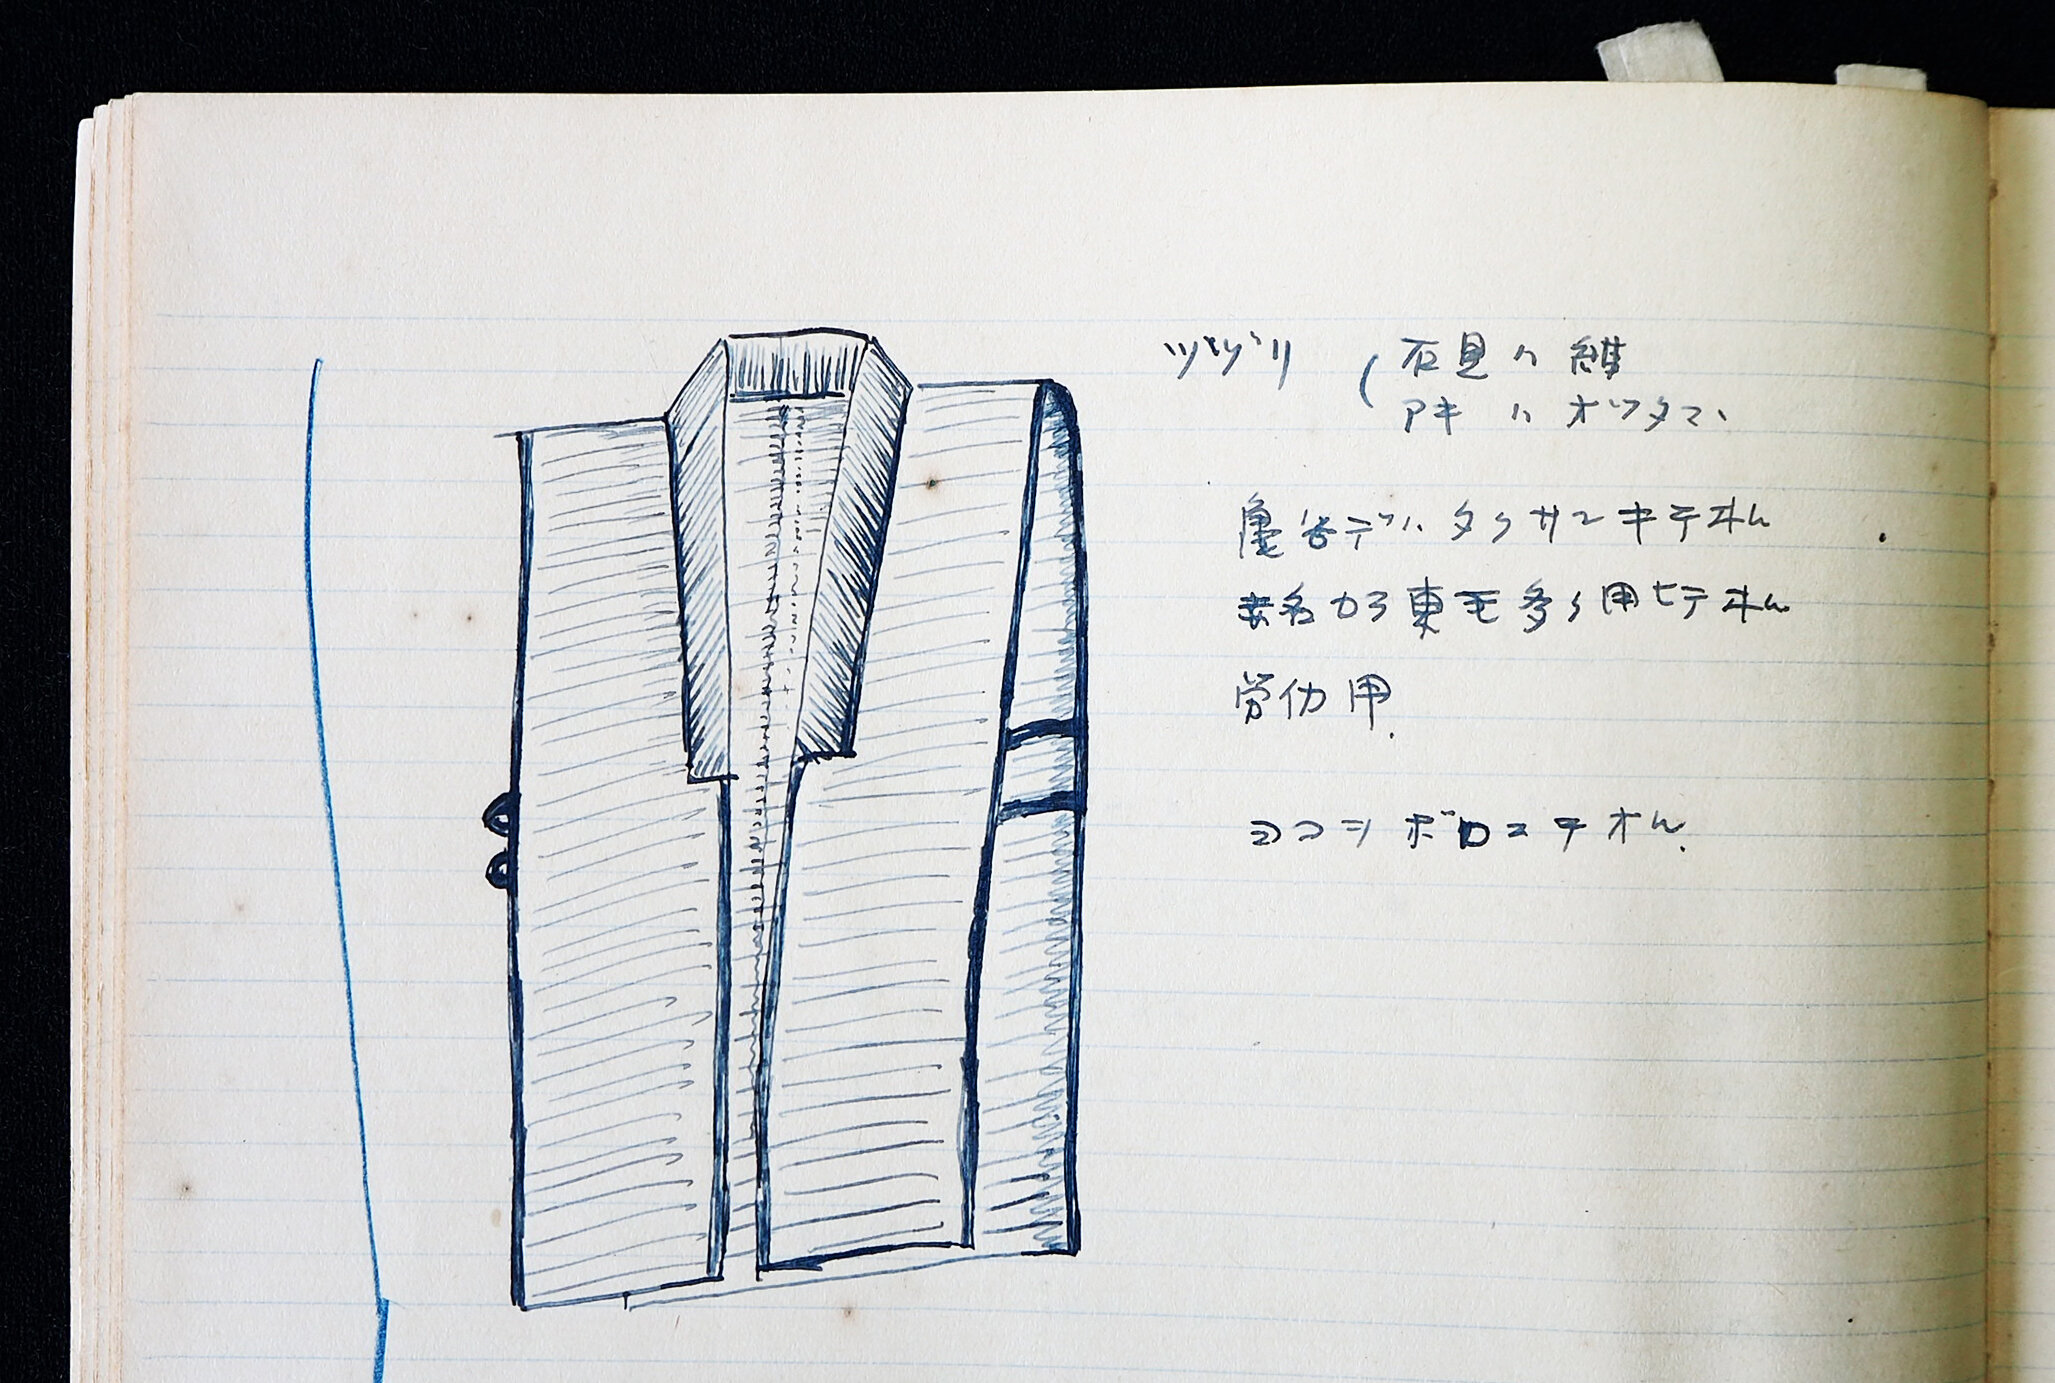 ツヾリ (石見ハ維
アキ ハ オツタマ、
デハ タクサンキテオル
カラ東モ多ク用ヒテオル
労仂用.
ココシ ボロニテオル.